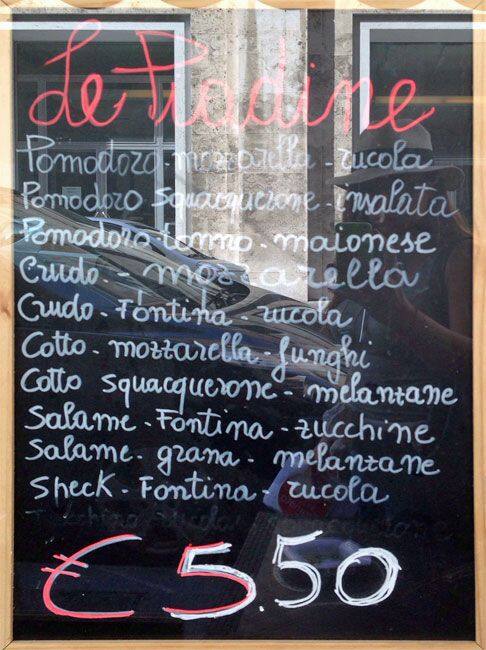 Le Piadine
Pomodoro-mozzarella-rucola
Pomodoro squacquerone-insalata
Pomodoro-tonno-maionese
Crudo.-mozzarella
Crudo-Fontina-rucola
Cotto-mozzarella-funghi
Cotto squacquerone-melanzane
Salame-Fontina-zucchine
Salame-grana-melanzane
Speck-Fontina-rucola
€5.50